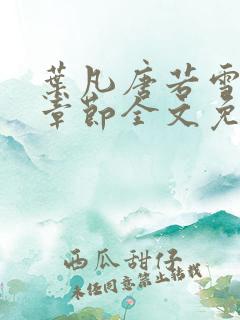 葉凡唐若雪
章節全文免
西瓜甜仔
未经同意禁止转载